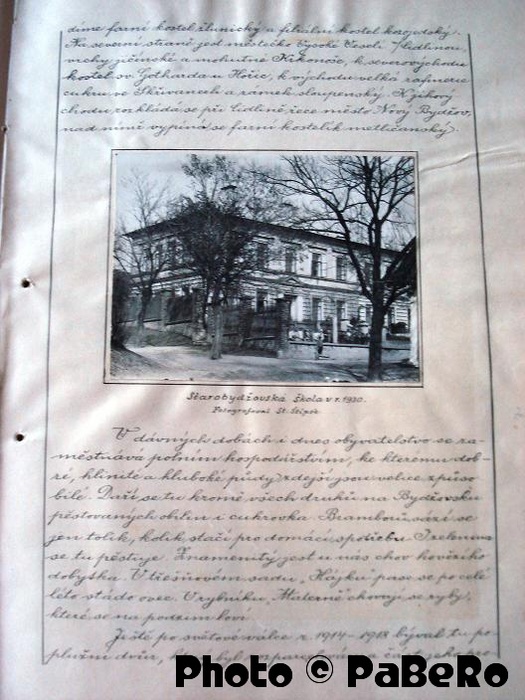 díme farní kostel žlunický a filiální kostel kozojedský.
Na severní straně jest městečko Vysoké Veselí s Cidlinou,
vrchy jičínské a mohutné Krkonoše, k severovýchodu
kostel sv. Gotharda u Hořic, k východu velká rafinerie
cukru ve Skřivanech a zámek sloupenský. K jihový
chodu rozkládá se při Cidlině řece město Nový Bydžov,
nad nímž vypíná se farní kostelík metličanský.
Starobydžovská škola v r. 1930.
Fotografoval St.
V dávných dobách i dnes obyvatelstvo se za-
městnává polním hospodářstvím, ke kterému dob-
ré, hlinité a hluboké půdy zdejší jsou velice způso
bilé. Daří se tu kromě všech druhů na Bydžovsku
pěstovaných obilin i cukrovka. Brambory sází se
jen tolik, kolik stačí pro domácí spotřebu. I zelenina
se tu pěstuje. Znamenitý jest u nás chov hovězího
dobytka. V třešňovém sadu „Hájku" pase se po celé
léto stádo ovec. V rybníku „Materně" chovají se ryby,
které se na podzim loví.
Ještě po světové válce r. 1914 - 1918 býval tu po-
plužní dvůr, který byl rozparcelován a část jeho pro-
Photo © PaBeRo